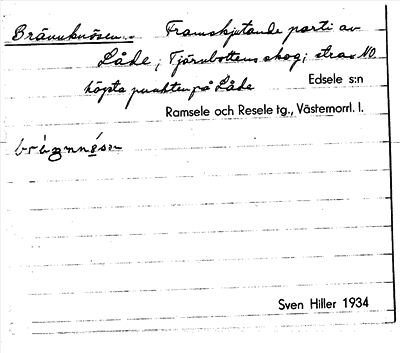 Brännknösen.. Framskjutande parti av
Låde, Tjärnbottens skog, strax NO
högsta punkten på Låde Edsele s:n
Ramsele och Resele tg., Västernorrl. l.
Sven Hiller 1934